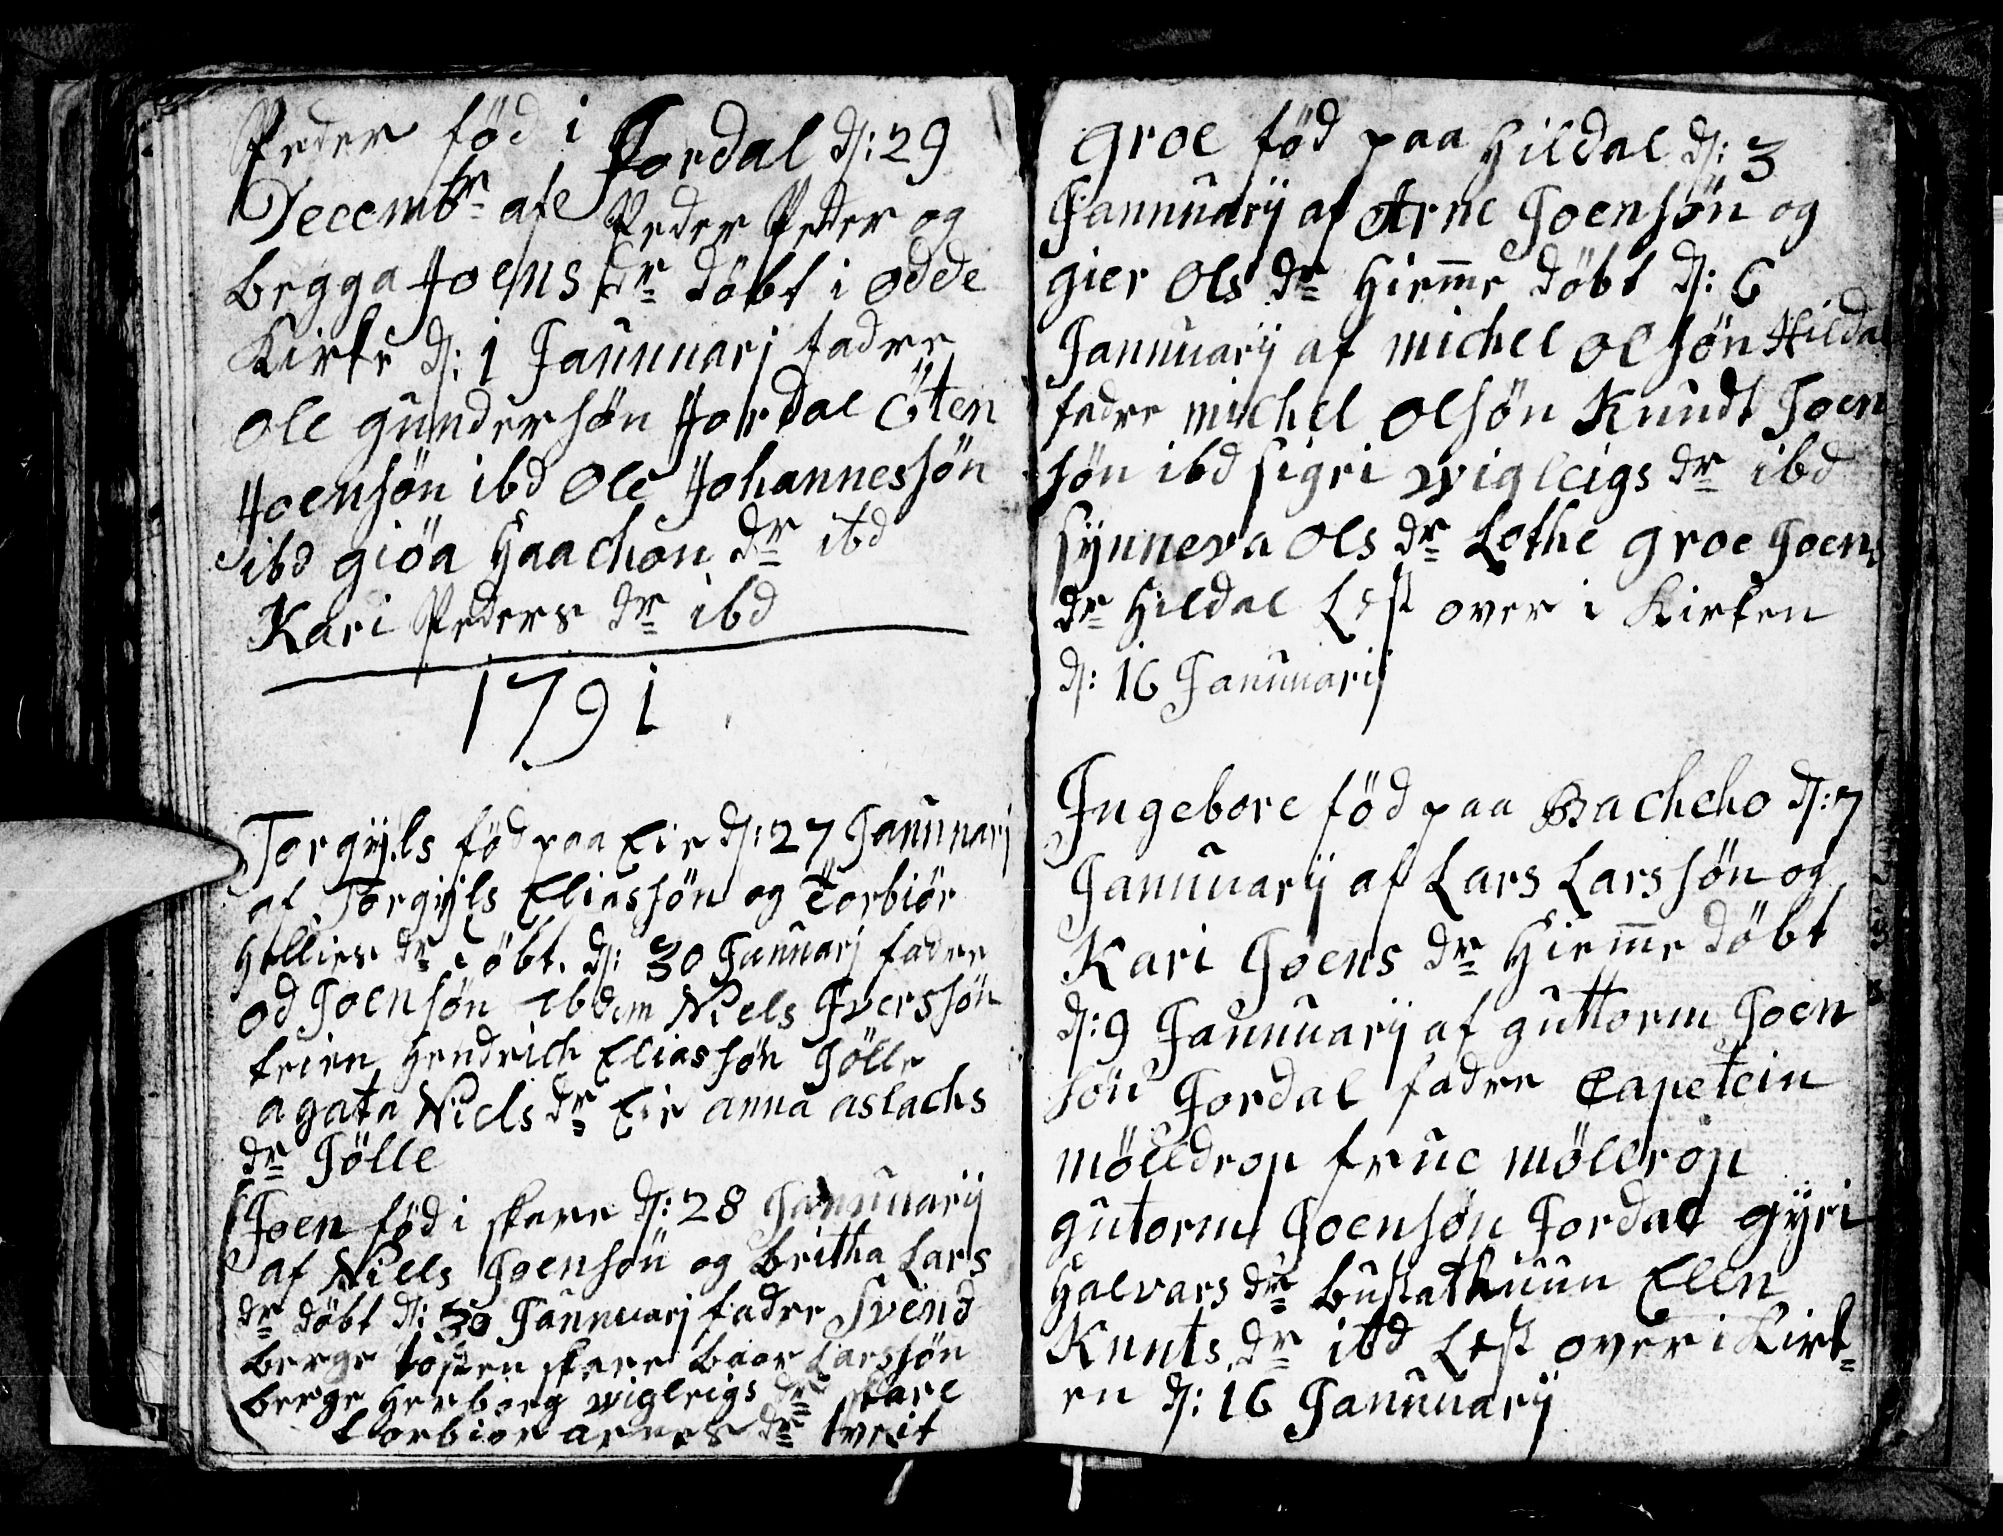 Peder föd i Jordal d: 29
Decembr afe Peder Peder og
begga Joens dr döbt i odde
Kirke d: 1 Jannuarj fadre
Ole gundersön Jordal östen
Joensön ibd Ole Johannessön
ibd giöa Haachon dr ibd
Kari Peders dr ibd
1791
Torgÿls föd paa Eie d: 27 Januuarj
af Torgÿls Eliassön og Torbiör
Hellies dr döbt. d: 30 Januuarj fadre
od Joensön ibdem Niels Iverssön
teien Hendrich Eliassön Jölle
agata Niels dr Eie anna aslachs
dr Jölle
Joen föd i skare d: 28 Januuarij
af Niells Joensön og britha Lars
dr döbt d: 30 Jannuarj fadre Svend
berge tosten skare baar Larssön
berge Herborg wigleigs dr skare
torbior arnes dr tveit
groe föd paa Hildal d: 3
Jannuarij af Arne Joensön og
gier Ols dr Hiemme döbt d: 6
Jannuarij af michel Olsön Hildal
fadre michel Olsön Knudt Joen
sön ibd sigri wigleigs dr ibd
sÿnneva Ols dr Lothe groe Joens
dr Hildal Lest over i Kirken
d: 16 Januuarij
Ingebore föd paa Bacheho d: 7
Januuarij af Lars Larssön og
Kari Joens dr Hiemme döbt
d: 9 Januuarij af guttorm Joen
sön Jordal fadre Capetein
mölldrop frue möllrop
gutorm Joensön Jordal gÿri
Halvars dr bustathuun Elen
Knuts dr ibd Lest over i Kirk=
en d: 16 Januuarij